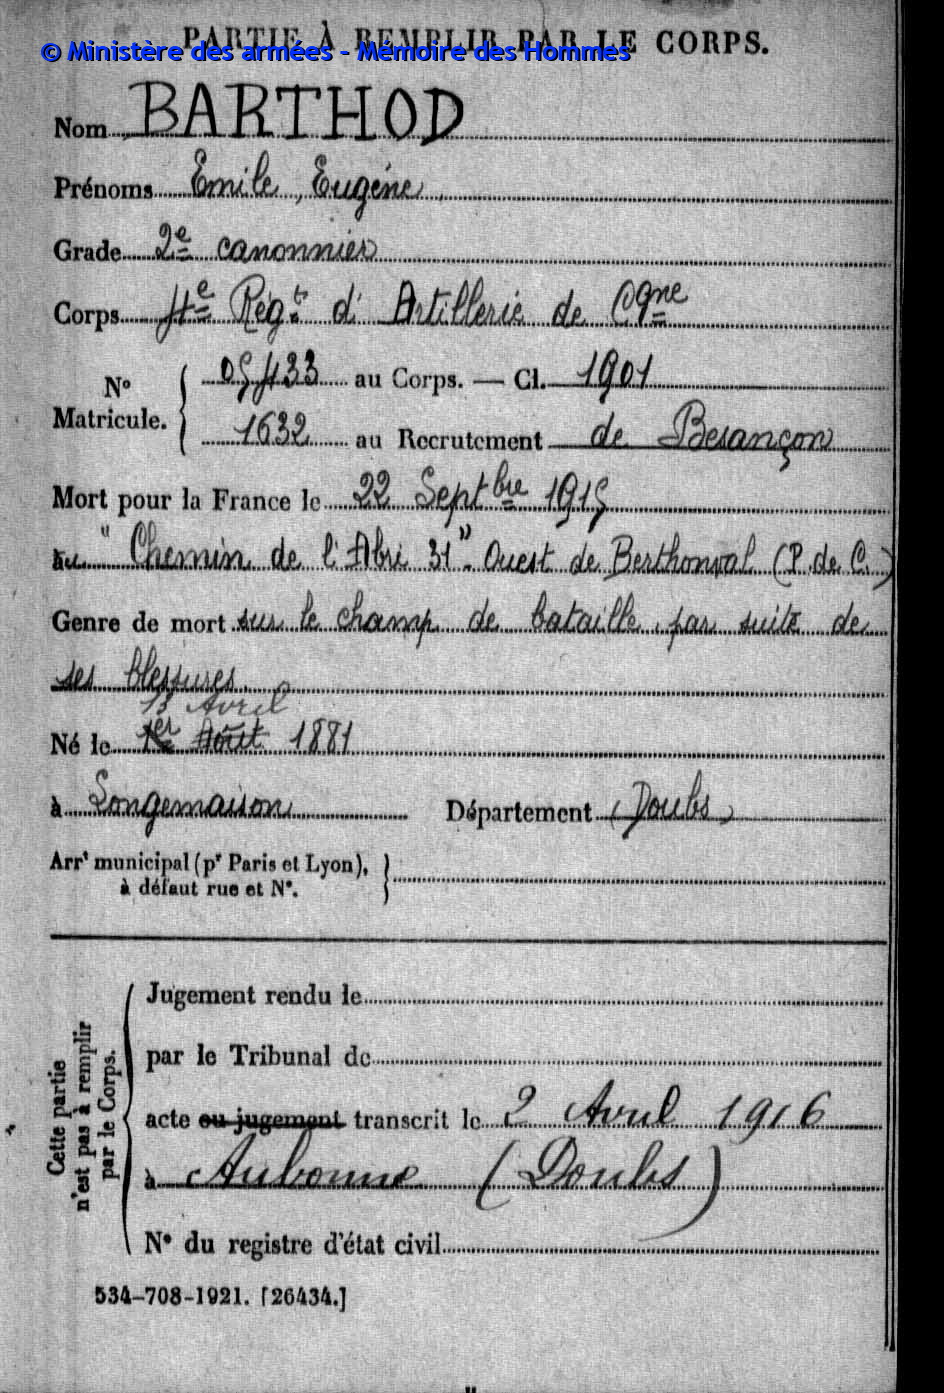 PARTIE À REMPLIR PAR LE CORPS.
© Ministère des armées - Mémoire des Hommes
Nom BARTHOD
Prénoms Emile, Eugéne,
Grade 2e canonnier
Corps 4e Régt d'Artillerie de Cgne
No 05433 au Corps. — Cl. 1901
Matricule. 1632 au Recrutement de Besançon
Mort pour la France le 22 Septbre 1915
au "Chemin de l'Abri 31". Ouest de Berthonval (P. de C.)
Genre de mort sur le champ de bataille par suite de
ses blessures.
13 Avril
Né le 1er Août 1881
à Longemaison Département (Doubs)
Arrt municipal (pr Paris et Lyon),
à défaut rue et No.
Cette partie
n'est pas à remplir
par le Corps.
Jugement rendu le
par le Tribunal de
acte ou jugement transcrit le 2 Avril 1916
à Aubonne (Doubs)
No du registre d'état civil
534-708-1921. [26434.]